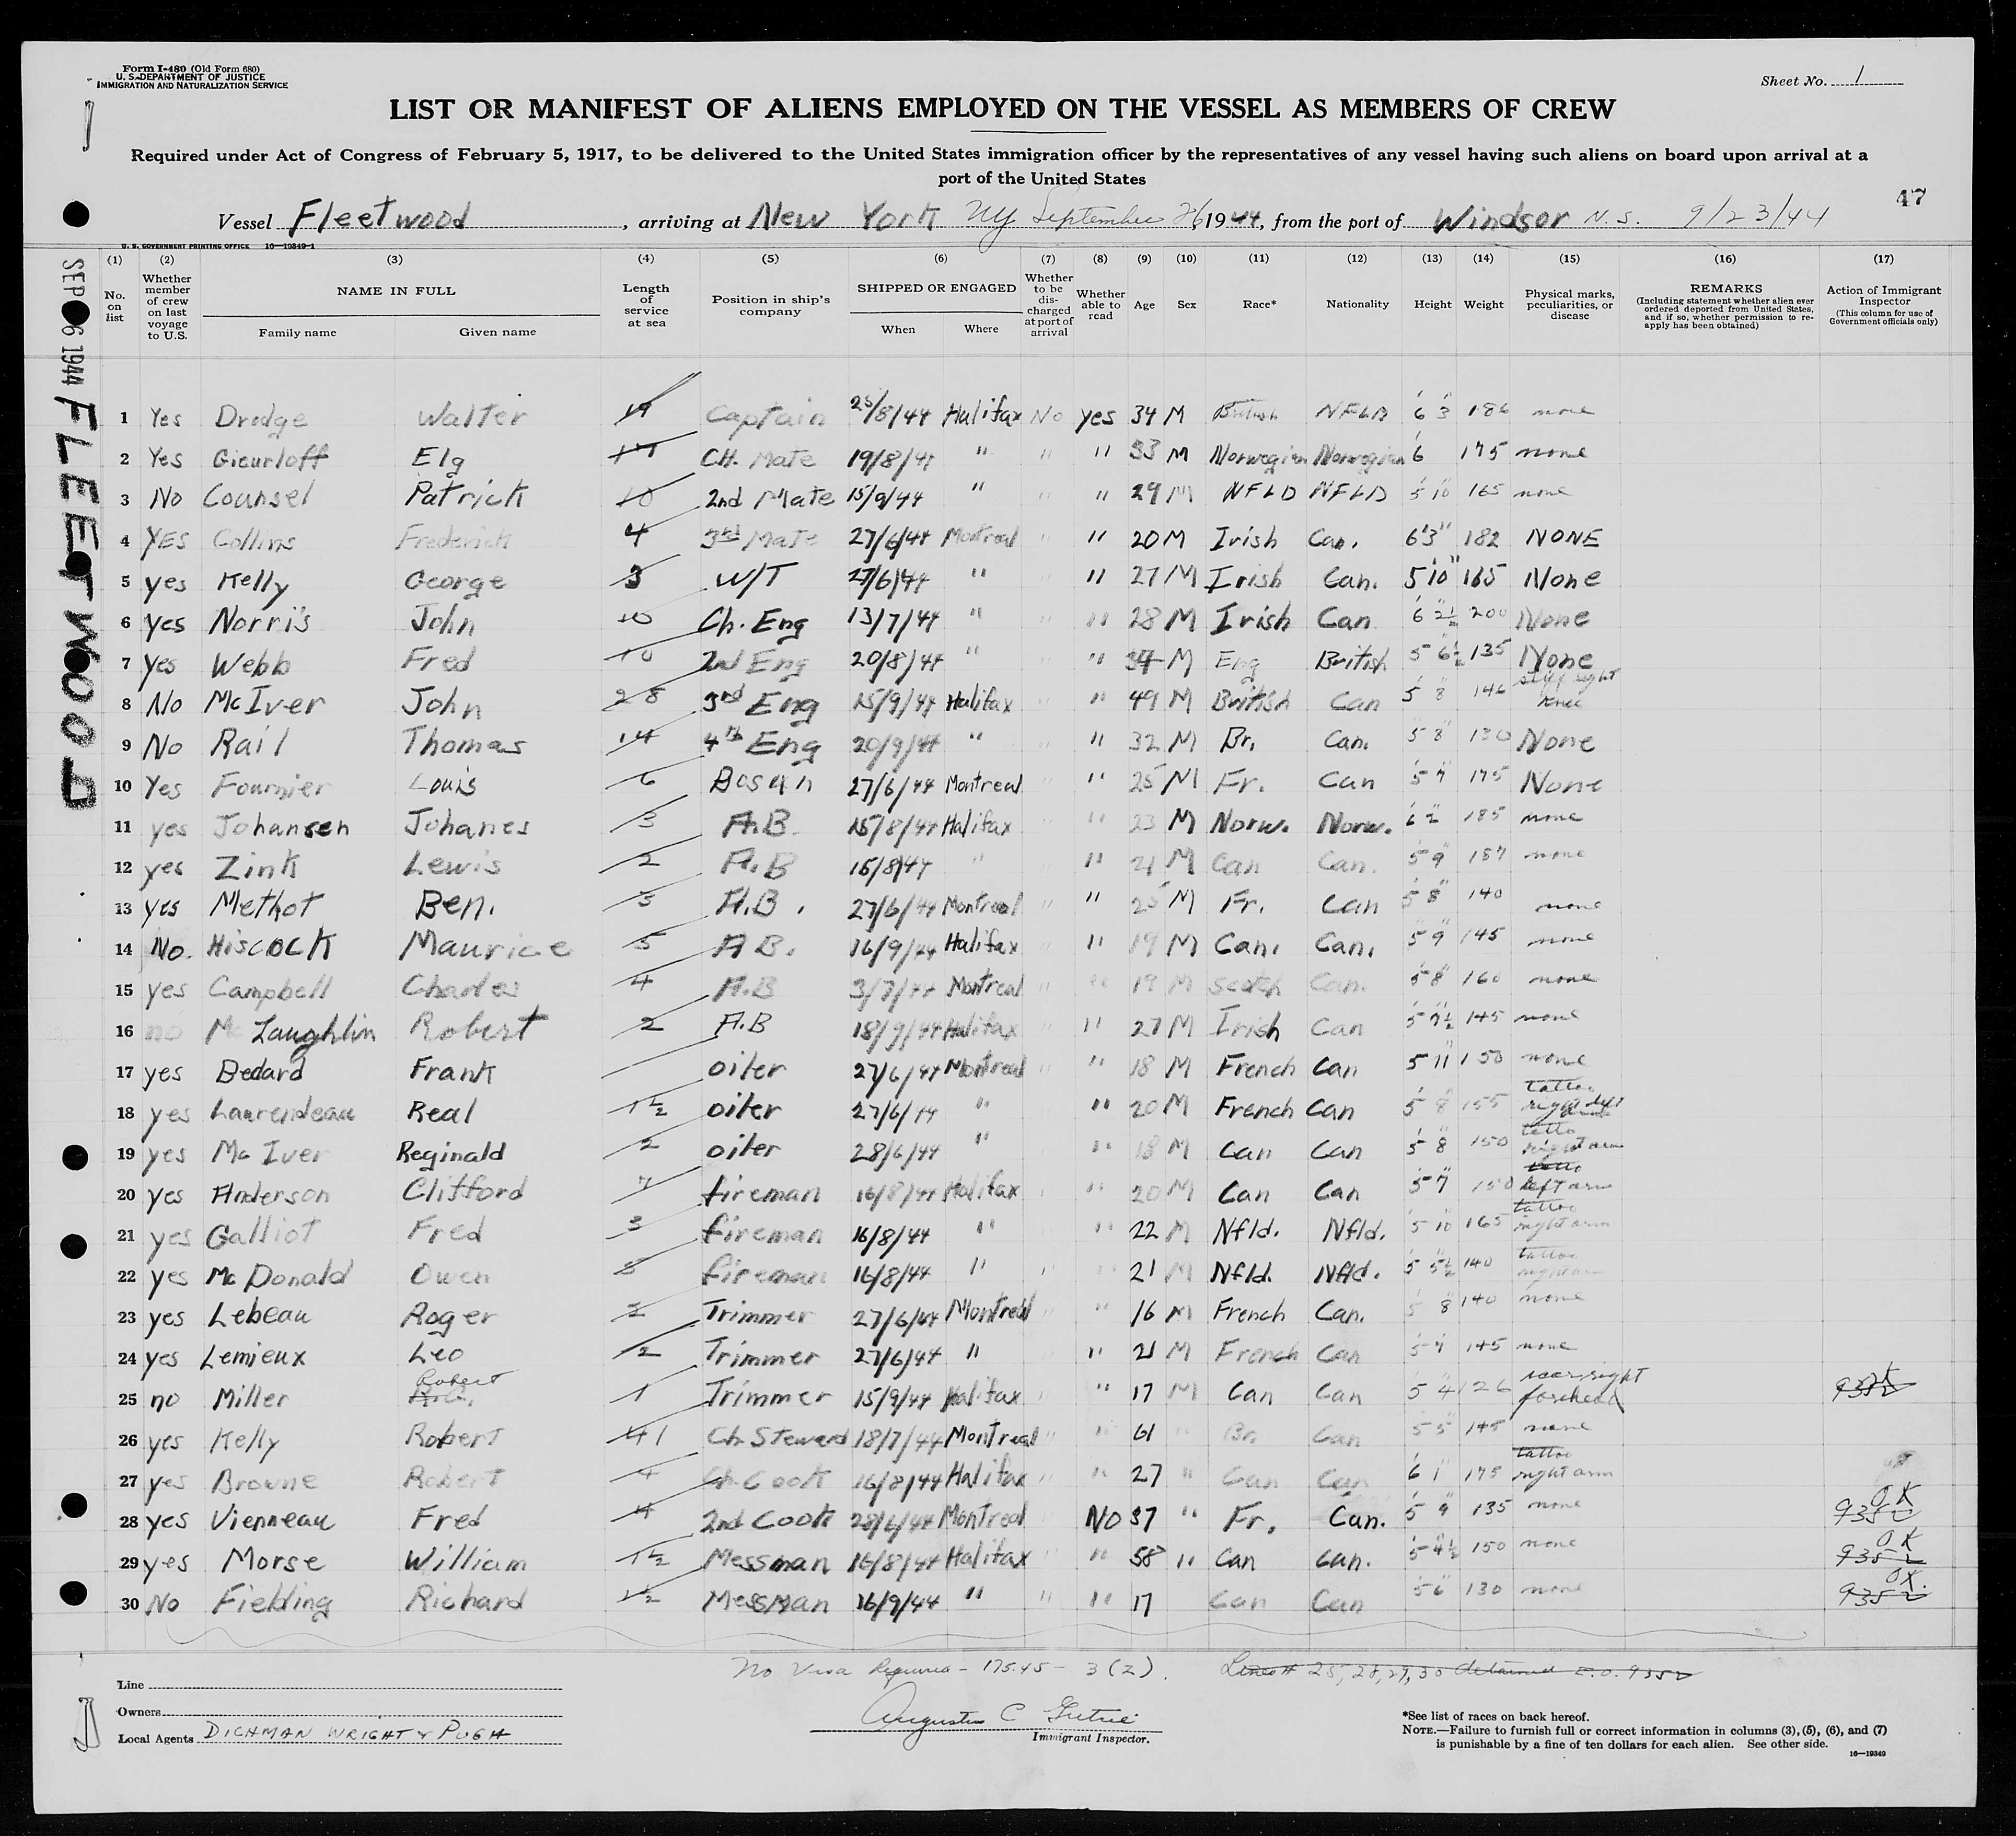 Form I-480 (Old Form 680)
U. S. DEPARTMENT OF JUSTICE
IMMIGRATION AND NATURALIZATION SERVICE
Sheet No. 1
LIST OR MANIFEST OF ALIENS EMPLOYED ON THE VESSEL AS MEMBERS OF CREW
Required under Act of Congress of February 5, 1917, to be delivered to the United States immigration officer by the representatives of any vessel having such aliens on board upon arrival at a
port of the United States
47
Vessel Fleetwood, arriving at New York NY September 26, 1944, from the port of Windsor N.S. 9/23/44
U. S. GOVERNMENT PRINTING OFFICE 16-19349-1
SEP 6 1944 FLEETWOOD
(1) (2) (3) (4) (5) (6) (7) (8) (9) (10) (11) (12) (13) (14) (15) (16) (17)
No. on list
Whether member of crew on last voyage to U.S.
NAME IN FULL
Family name Given name
Length of service at sea
Position in ship's company
SHIPPED OR ENGAGED
When Where
Whether to be discharged at port of arrival
Whether able to read
Age Sex Race* Nationality Height Weight
Physical marks, peculiarities, or disease
REMARKS
(Including statement whether alien ever ordered deported from United States, and if so, whether permission to reapply has been obtained)
Action of Immigrant Inspector
(This column for use of Government officials only)
1 Yes Dredge Walter 19 Captain 25/8/44 Halifax No yes 34 M British NFLD 6' 3" 186 none
2 Yes Gieurloff Elg CH. Mate 19/8/44 " " " 33 M Norwegian Norwegian 6' 175 none
3 No Counsel Patrick 10 2nd Mate 15/9/44 " " " 29 M NFLD NFLD 5' 10" 165 none
4 YES Collins Frederick 4 3rd Mate 27/6/44 Montreal " " 20 M Irish Can. 6'3" 182 NONE
5 yes Kelly George 3 W/T 27/6/44 " " " 27 M Irish Can. 5'10" 165 None
6 yes Norris John 10 Ch. Eng 13/7/44 " " " 28 M Irish Can 6' 2½" 200 None
7 yes Webb Fred 10 2nd Eng 20/8/44 " " " 34 M Eng British 5' 6½ 135 None
8 No McIver John 28 3rd Eng 15/9/44 Halifax " " 49 M British Can 5' 8" 146 stiff right knee
9 No Rail Thomas 14 4th Eng 20/9/44 " " " 32 M Br. Can. 5' 8" 130 None
10 Yes Fournier Louis 6 Bosun 27/6/44 Montreal " " 25 M Fr. Can 5' 7" 175 None
11 yes Johansen Johanes 3 A.B. 15/8/44 Halifax " " 23 M Norw. Norw. 6' 2" 185 none
12 yes Zink Lewis 2 A.B 15/8/44 " " " 21 M Can Can. 5' 9" 157 none
13 yes Methot Ben. 3 A.B. 27/6/44 Montreal " " 25 M Fr. Can 5' 8" 140 none
14 No. Hiscock Maurice 5 A B. 16/9/44 Halifax " " 19 M Can. Can. 5' 9" 145 none
15 yes Campbell Charles 4 A.B 3/7/44 Montreal " " 19 M Scotch Can. 5' 8" 160 none
16 no Mc Laughlin Robert 2 A.B 18/9/44 Halifax " " 27 M Irish Can 5' 7½ 145 none
17 yes Bedard Frank oiler 27/6/44 Montreal " " 18 M French Can 5' 11" 150 none
18 yes Laurendeau Real 1½ oiler 27/6/44 " " " 20 M French Can 5' 8" 155 tattoo right left
19 yes Mc Iver Reginald 2 oiler 28/6/44 " " 18 M Can Can 5' 8" 150 tatto right arm
20 yes Anderson Clifford 7 fireman 16/8/44 Halifax " " 20 M Can Can 5' 7" 150 tatto left arm
21 yes Galliot Fred 3 fireman 16/8/44 " " " 22 M Nfld. Nfld. 5' 10" 165 tattoo right arm
22 yes Mc Donald Owen 3 fireman 16/8/44 " " " 21 M Nfld. Nfld. 5' 5½ 140 tattoo right arm
23 yes Lebeau Roger 2 Trimmer 27/6/44 Montreal " " 16 M French Can. 5' 8" 140 none
24 yes Lemieux Leo 2 Trimmer 27/6/44 " " " 21 M French Can 5' 7" 145 none
25 no Miller Robert 1 Trimmer 15/9/44 Halifax " " 17 M Can Can 5' 4" 126 scar right forehead 9352
26 yes Kelly Robert 41 Ch. Steward 18/7/44 Montreal " " 61 " Br. Can 5' 5" 145 none
27 yes Browne Robert 4 Ch. Cook 16/8/44 Halifax " " 27 " Can Can 6' 1" 175 tattoo right arm
28 yes Vienneau Fred 4 2nd Cook 28/6/44 Montreal No 37 " Fr. Can. 5' 9" 135 none OK 9352
29 yes Morse William 1½ Messman 16/8/44 Halifax " " 58 " Can Can. 5' 4½ 150 none OK 9352
30 No Fielding Richard 1½ Messman 16/9/44 " " " 17 Can Can 5' 6" 130 none OK. 9352
No Visa Required - 175.45 - 3 (2). Lines # 25, 28, 29, 30 detained E.O. 9352
Line
Owners
Local Agents DICHMAN WRIGHT & PUGH
Immigrant Inspector.
*See list of races on back hereof.
NOTE.—Failure to furnish full or correct information in columns (3), (5), (6), and (7)
is punishable by a fine of ten dollars for each alien. See other side.
16—19349